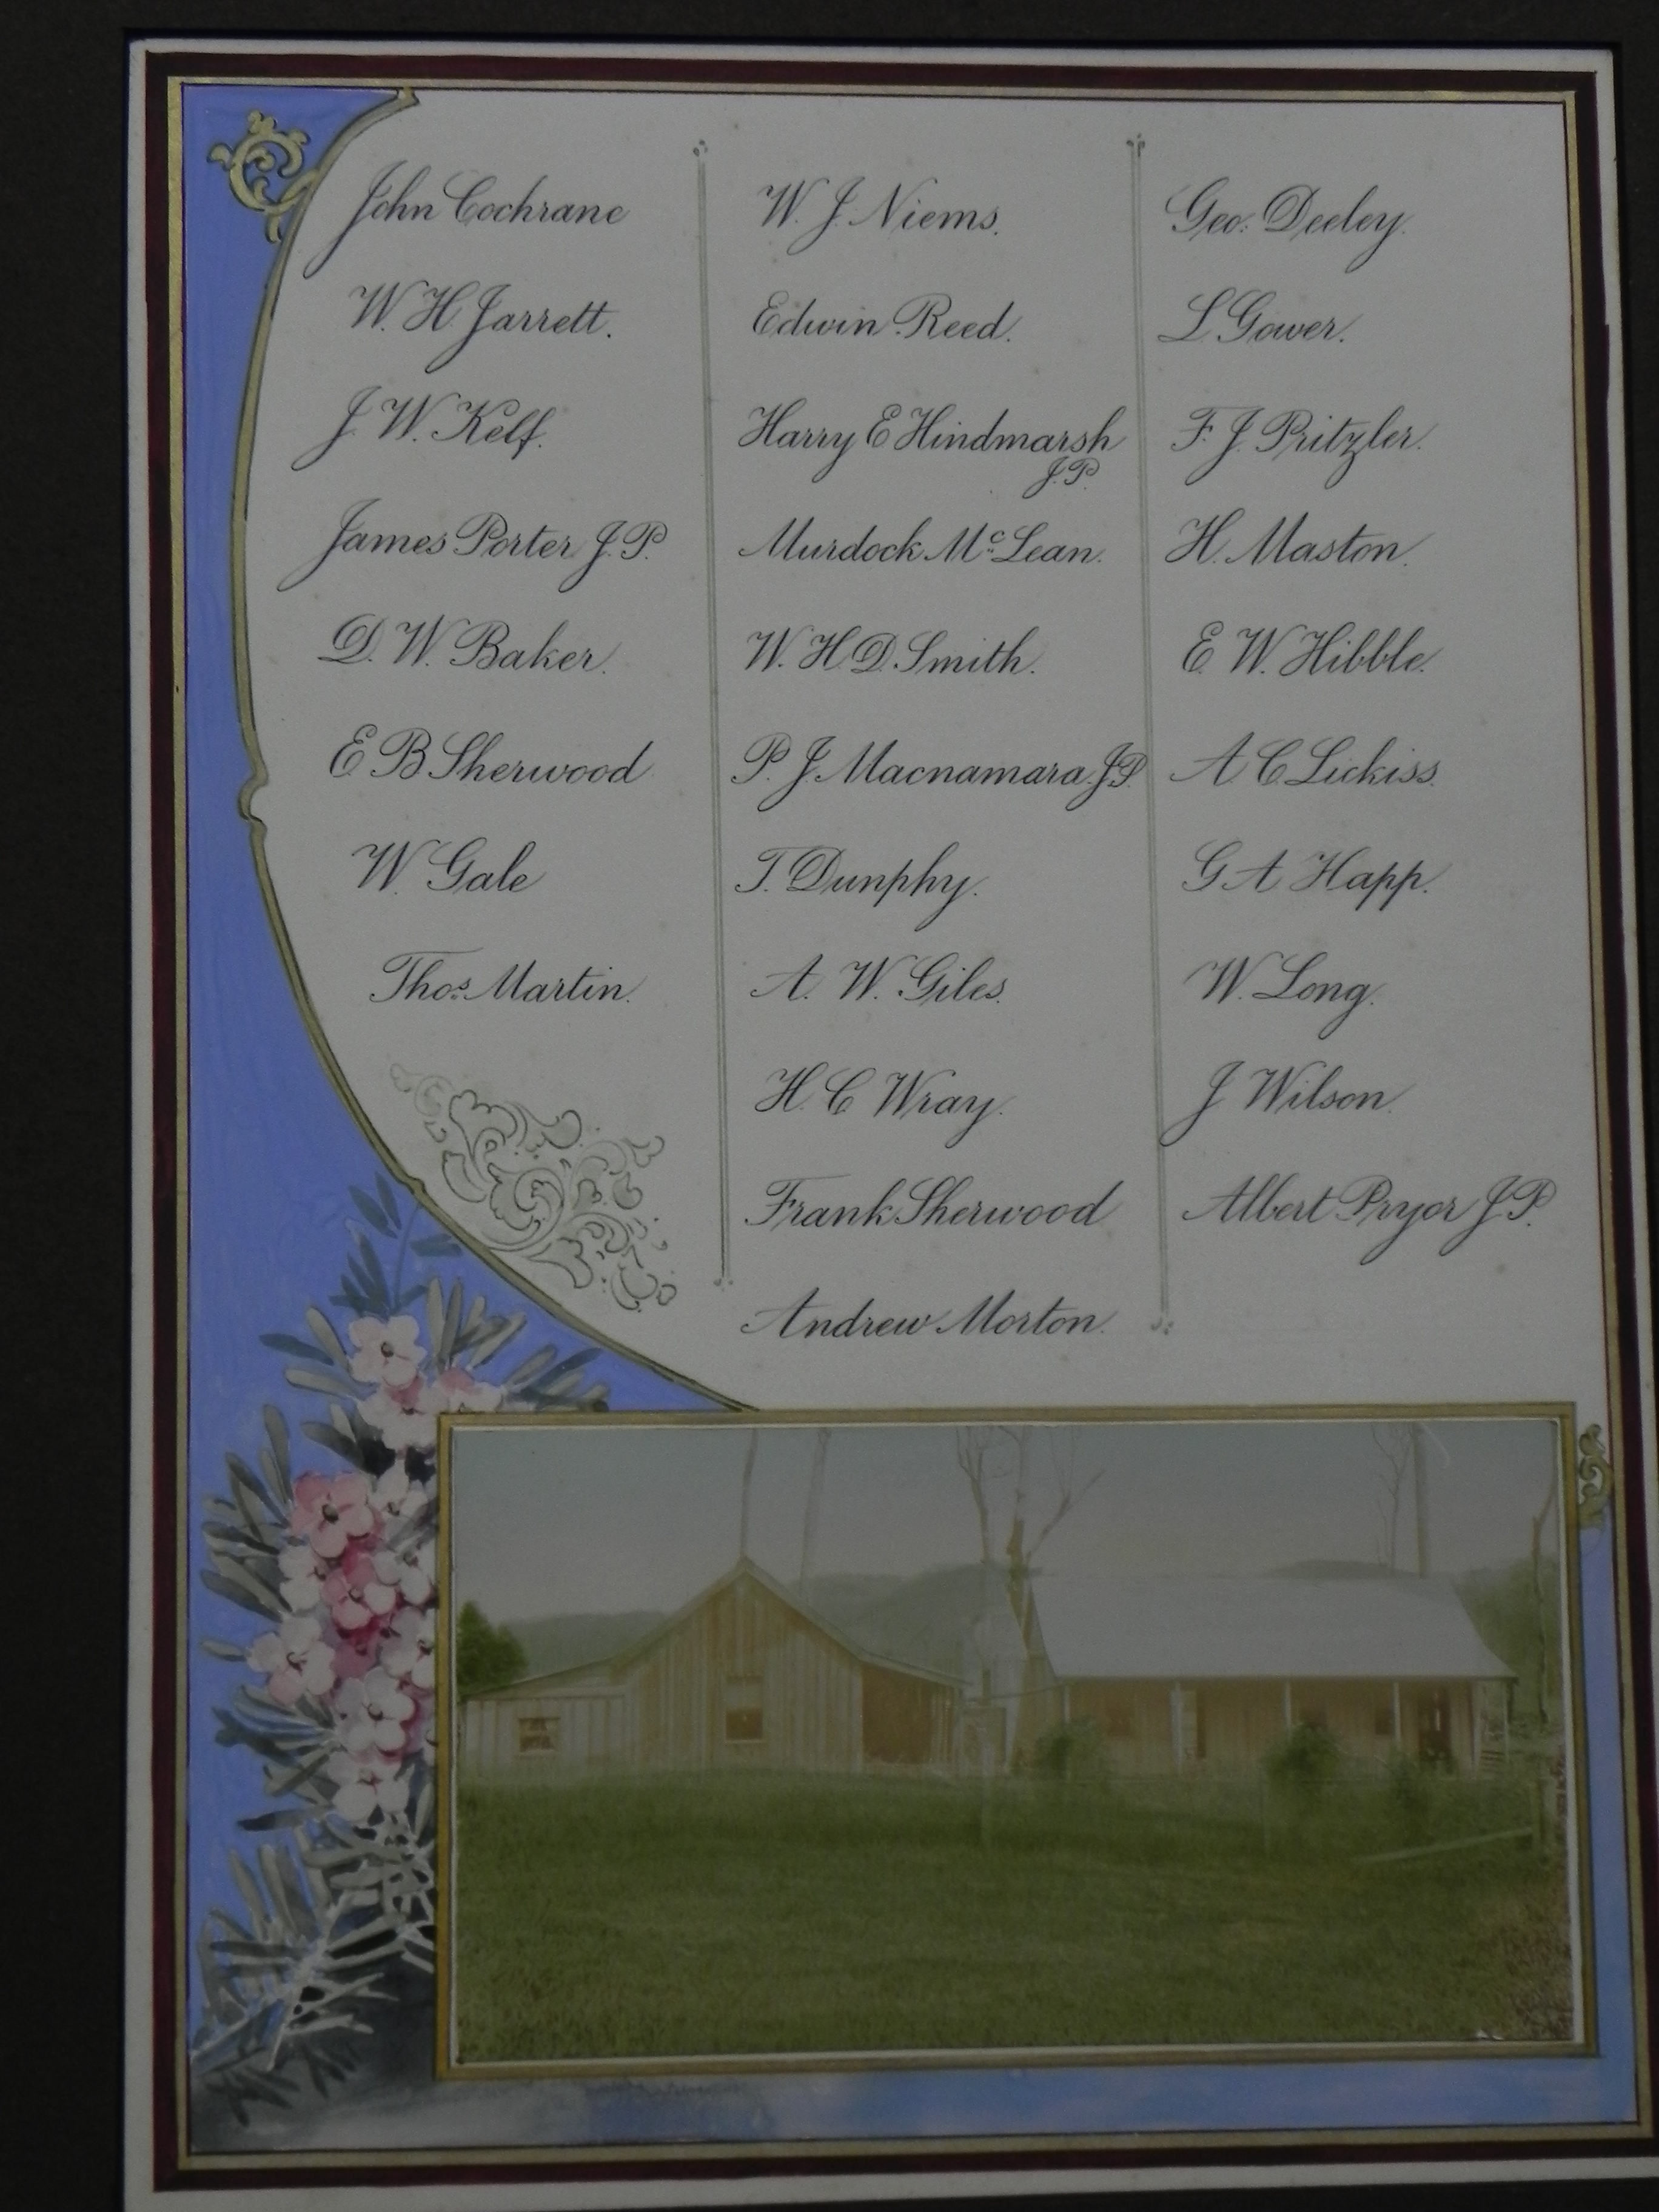 John Cochrane
W. H. Jarrett.
J. W. Kelf.
James Porter J. P.
D. W. Baker.
E B Sherwood
W. Gale
Thos. Martin.
W. J. Niems.
Edwin Reed.
Harry E Hindmarsh
J. P.
Murdock McLean.
W. H D. Smith.
P. J. Macnamara. J.P.
T. Dunphy.
A. W. Giles.
H. C Wray.
Frank Sherwood
Andrew Morton.
Geo: Deeley.
L Gower.
F. J. Pritzler.
H. Maston.
E. W. Hibble.
A C. Lickiss.
G A Happ.
W. Long.
J Wilson.
Albert Pryor J. P.